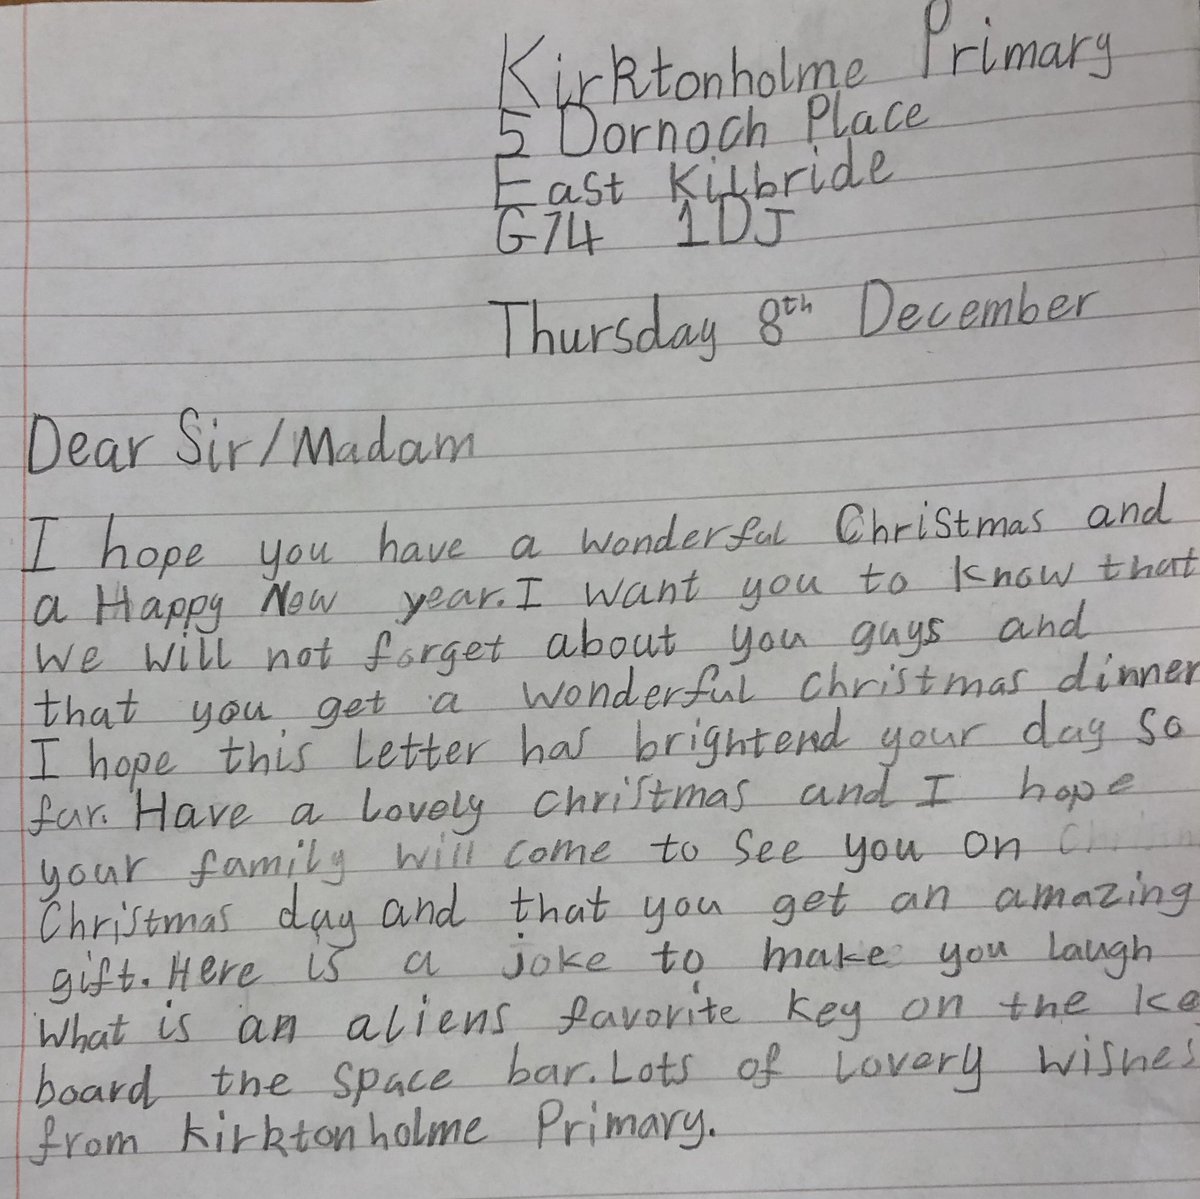 Kirktonholme Primary
5 Dornoch Place
East Kilbride
G74 1DJ
Thursday 8th December
Dear Sir/Madam
I hope you have a wonderful Christmas and
a Happy New year. I want you to know that
we will not forget about you guys and
that you get a wonderful christmas dinner
I hope this letter has brightend your day so
far. Have a lovely christmas and I hope
your family will come to see you on
Christmas day and that you get an amazing
gift. Here is a joke to make you laugh
What is an aliens favorite key on the ke
board the space bar. Lots of lovery wishes
from kirktonholme Primary.